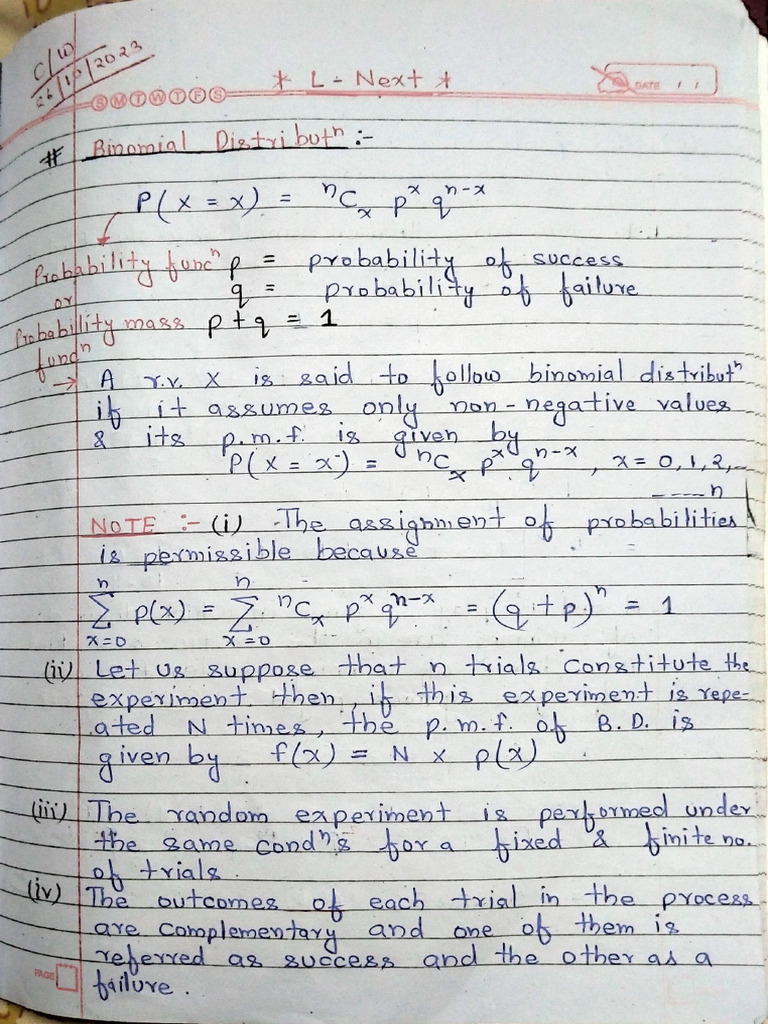 C/W
26/10/2023
* L - Next *
S M T W T F S
DATE / /
# Binomial Distributⁿ :-
P(X = x) = ⁿCₓ pˣ qⁿ⁻ˣ
Probability funcⁿ p = probability of success
or q = probability of failure
Probability mass p + q = 1
funcⁿ
→ A r.v. X is said to follow binomial distributⁿ
if it assumes only non-negative values
& its p.m.f. is given by
P(X = x) = ⁿCₓ pˣ qⁿ⁻ˣ , x = 0, 1, 2, --
---- n
NOTE :- (i) The assignment of probabilities
is permissible because
n n
∑ p(x) = ∑ ⁿCₓ pˣ qⁿ⁻ˣ = (q + p)ⁿ = 1
x=0 x=0
(ii) Let us suppose that n trials constitute the
experiment. then, if this experiment is repe-
ated N times, the p.m.f. of B.D. is
given by f(x) = N × p(x)
(iii) The random experiment is performed under
the same condⁿs for a fixed & finite no.
of trials.
(iv) The outcomes of each trial in the process
are complementary and one of them is
referred as success and the other as a
failure.
PAGE